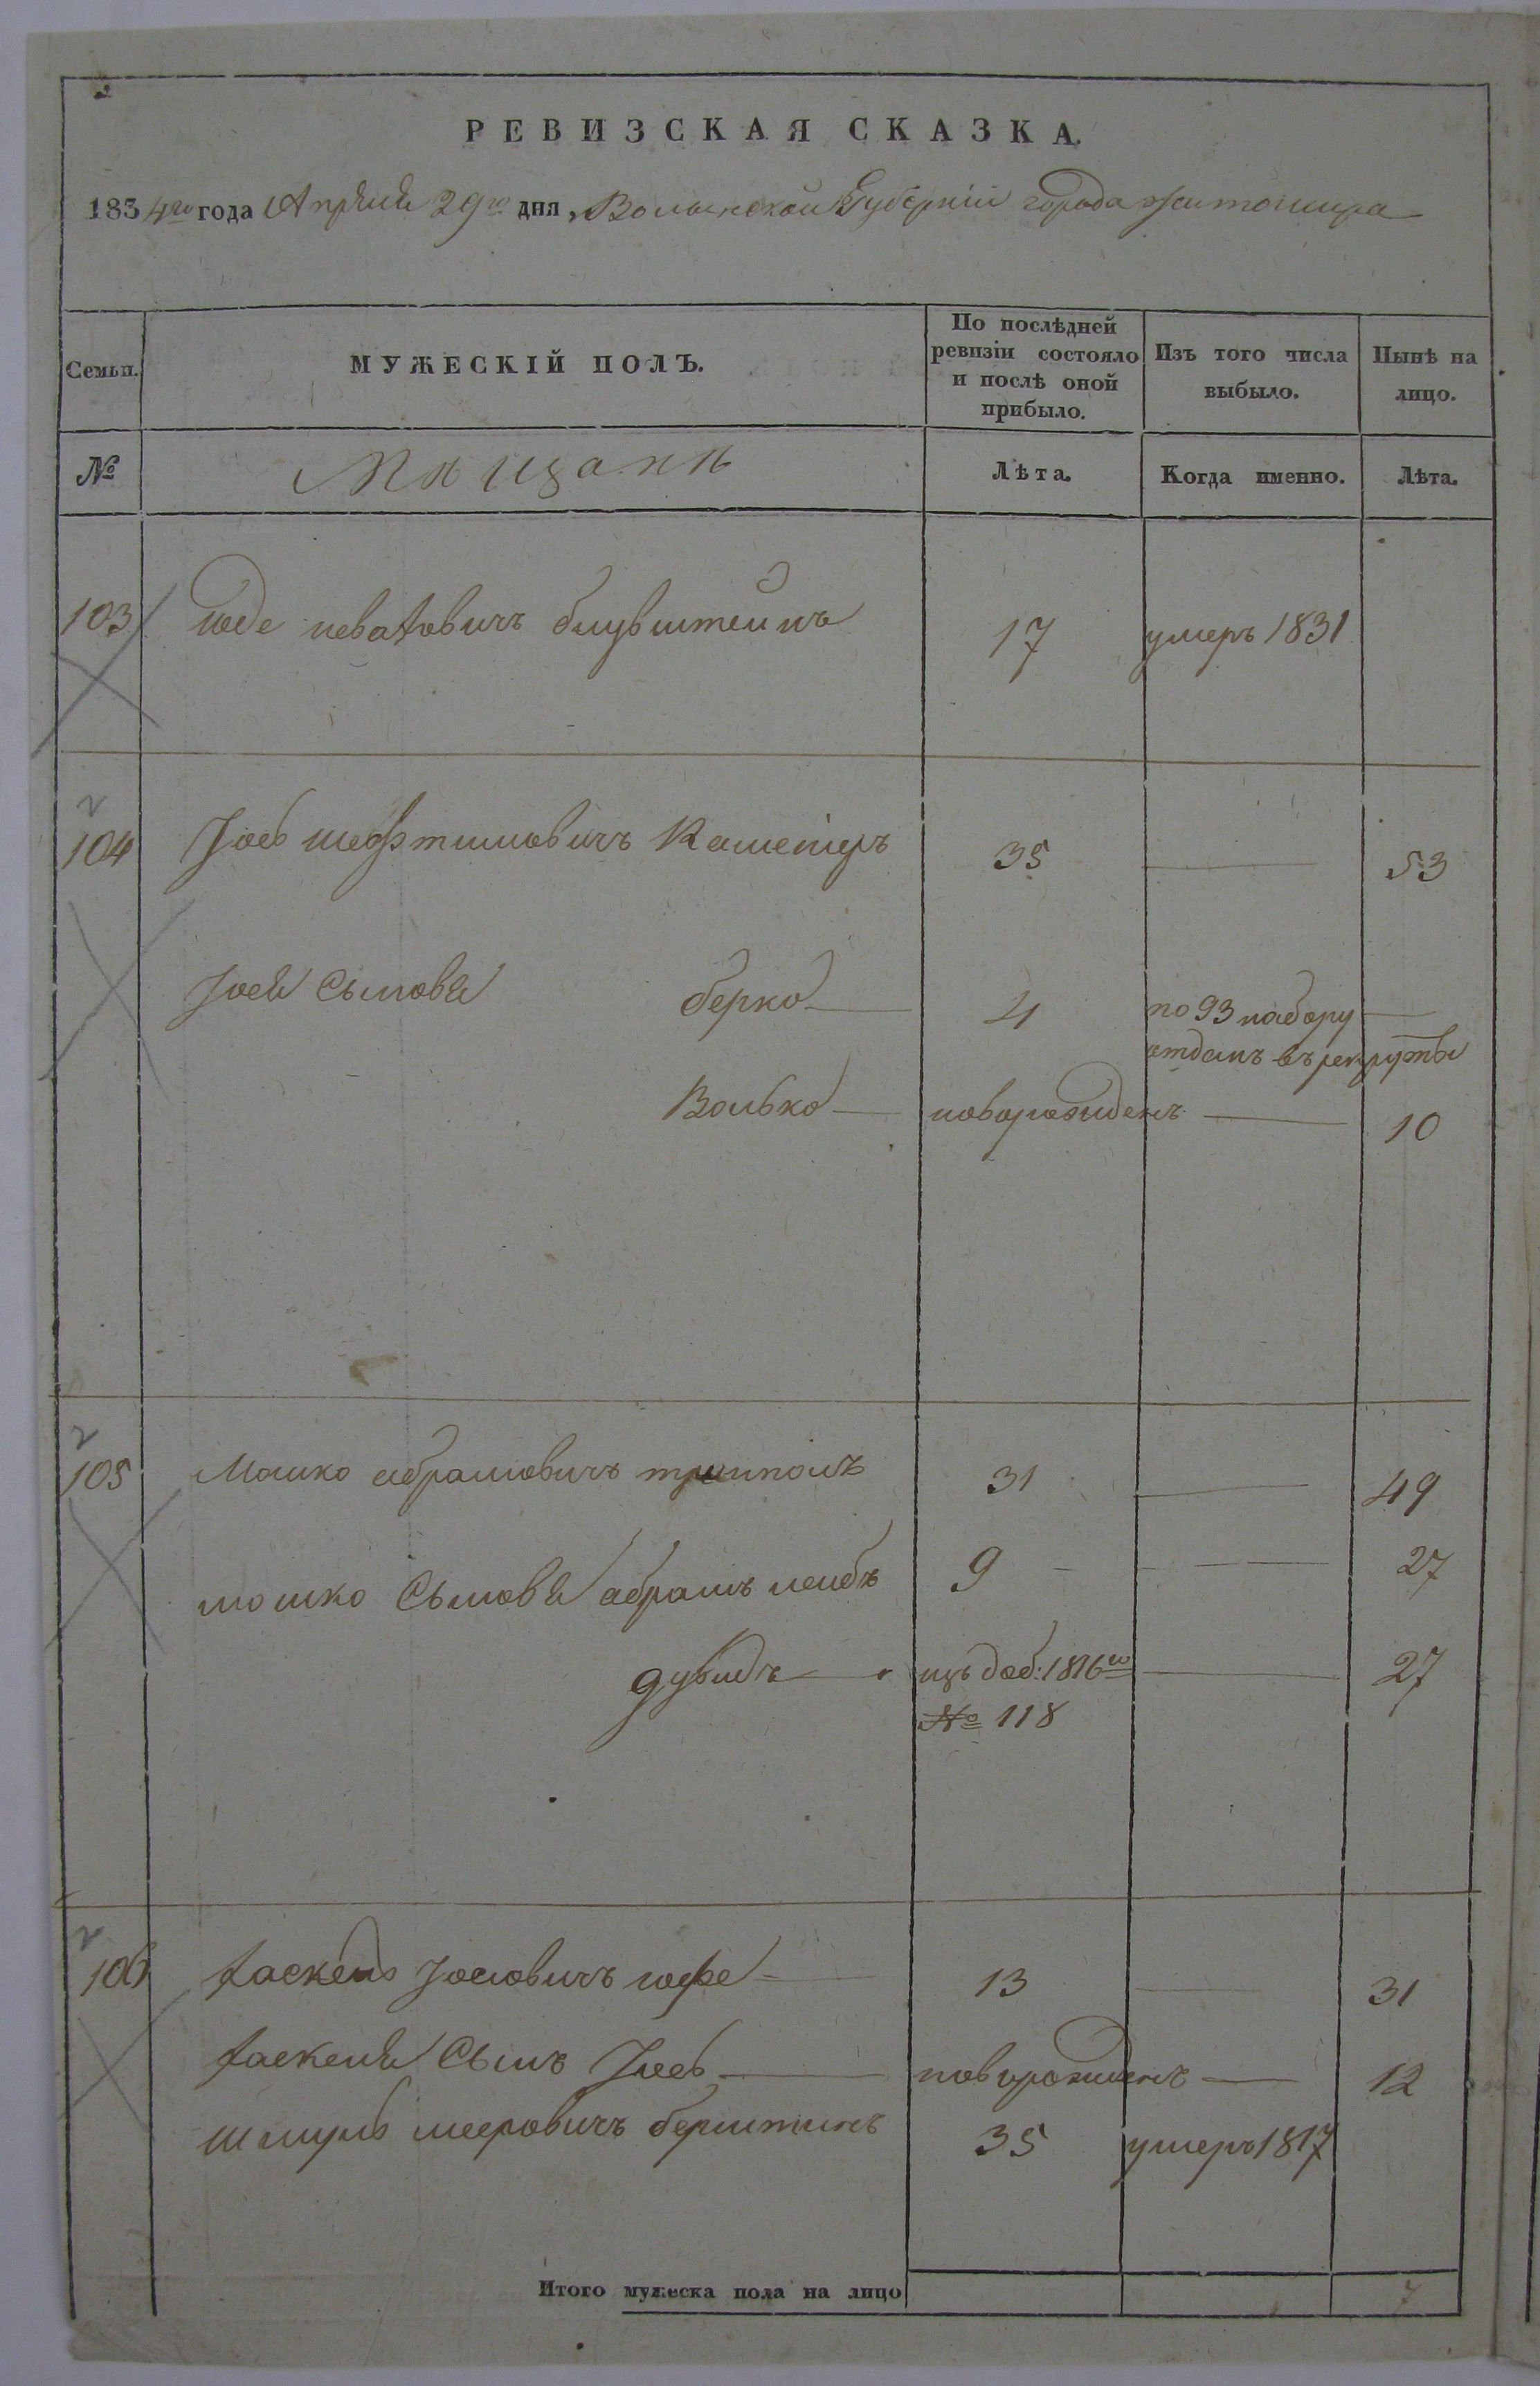 РЕВИЗСКАЯ СКАЗКА.
1834го года Апреля 29го дня, Волынской Губерніи города Житомира
Семьи.
МУЖЕСКІЙ ПОЛЪ.
По послѣдней ревизіи состояло и послѣ оной прибыло.
Изъ того числа выбыло.
Нынѣ на лицо.
№
Мѣщанѣ
Лѣта.
Когда именно.
Лѣта.
103 блувштейнъ 17 умеръ 1831
2
104 Іось шефтиловичъ 35 53
Іося Сыновя берко 4 по 93 набору
отданъ въ рекруты
Волько новорожденъ 10
2
105 Мошко абрамовичъ 31 49
мошко Сыновя абрамъ лейбъ 9 27
дувидъ изъ доб: 1816го 27
№ 118
2
106 Хаскель Іосиовичъ иоффе 13 31
Хаскеля Сынъ Іось новорожденъ 12
шмуль мееровичъ берштинъ 35 умеръ 1817
Итого мужеска пола на лицо 7